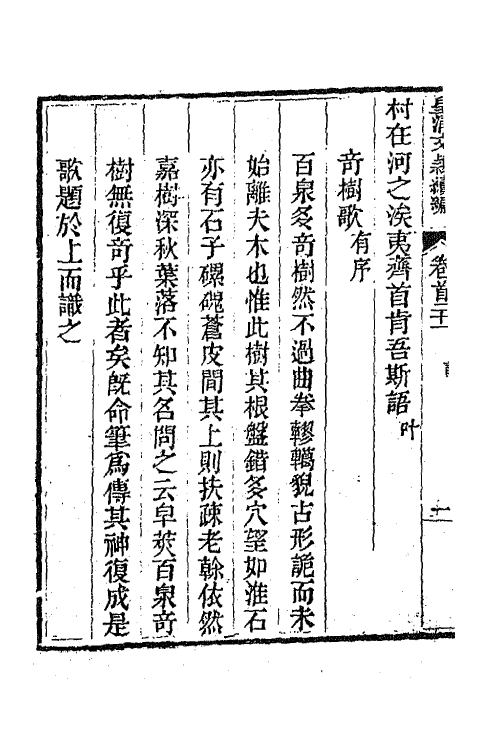 皇清文穎續編 卷首二十一 詩 十一
村在河之涘夷齊首肯吾斯語叶
竒樹歌有序
百泉多竒樹然不過曲拳轇轕貌古形詭而未
始離夫木也惟此樹其根盤錯多穴望如淮石
亦有石子磥磈蒼皮間其上則扶疎老榦依然
嘉樹深秋葉落不知其名問之云皁莢百泉竒
樹無復竒乎此者矣旣命筆爲傳其神復成是
歌題於上而識之